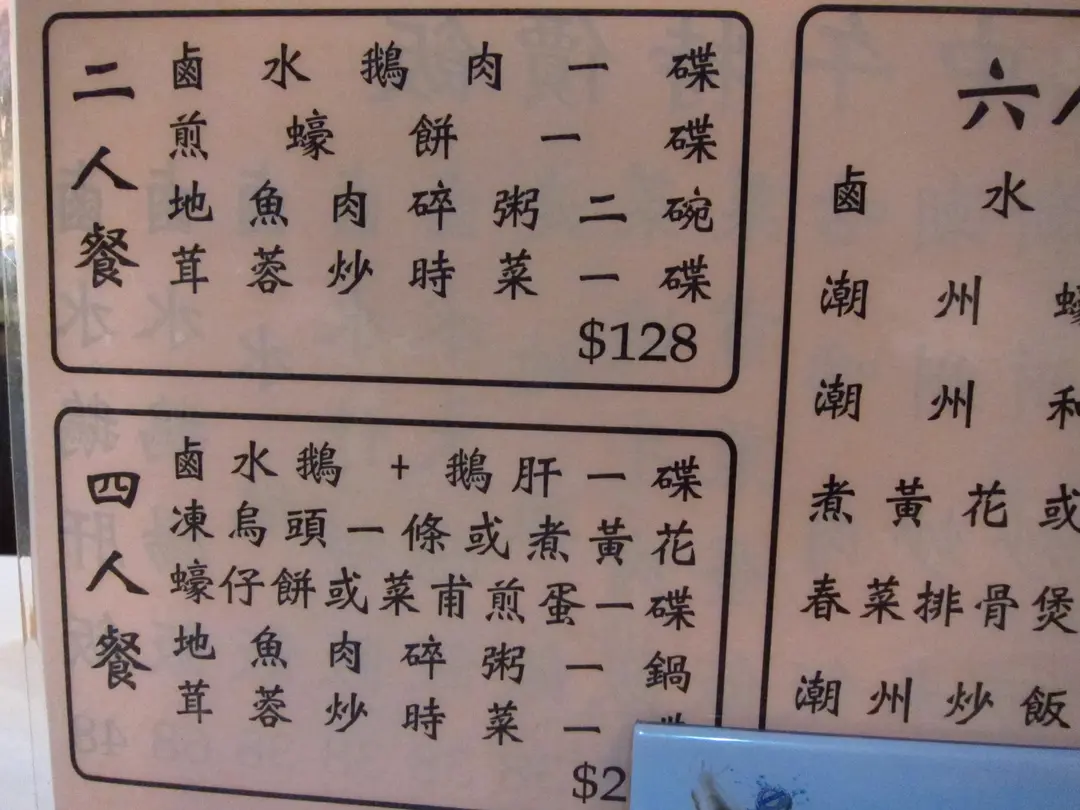 二人餐
鹵水鵝肉一碟
煎蠔餅一碟
地魚肉碎粥二碗
茸蓉炒時菜一碟
$128
四人餐
鹵水鵝 + 鵝肝一碟
凍烏頭一條或煮黃花
蠔仔餅或菜甫煎蛋一碟
地魚肉碎粥一鍋
茸蓉炒時菜一
$2
六人
鹵水
潮州蠔
潮州
煮黃花或
春菜排骨煲
潮州炒飯